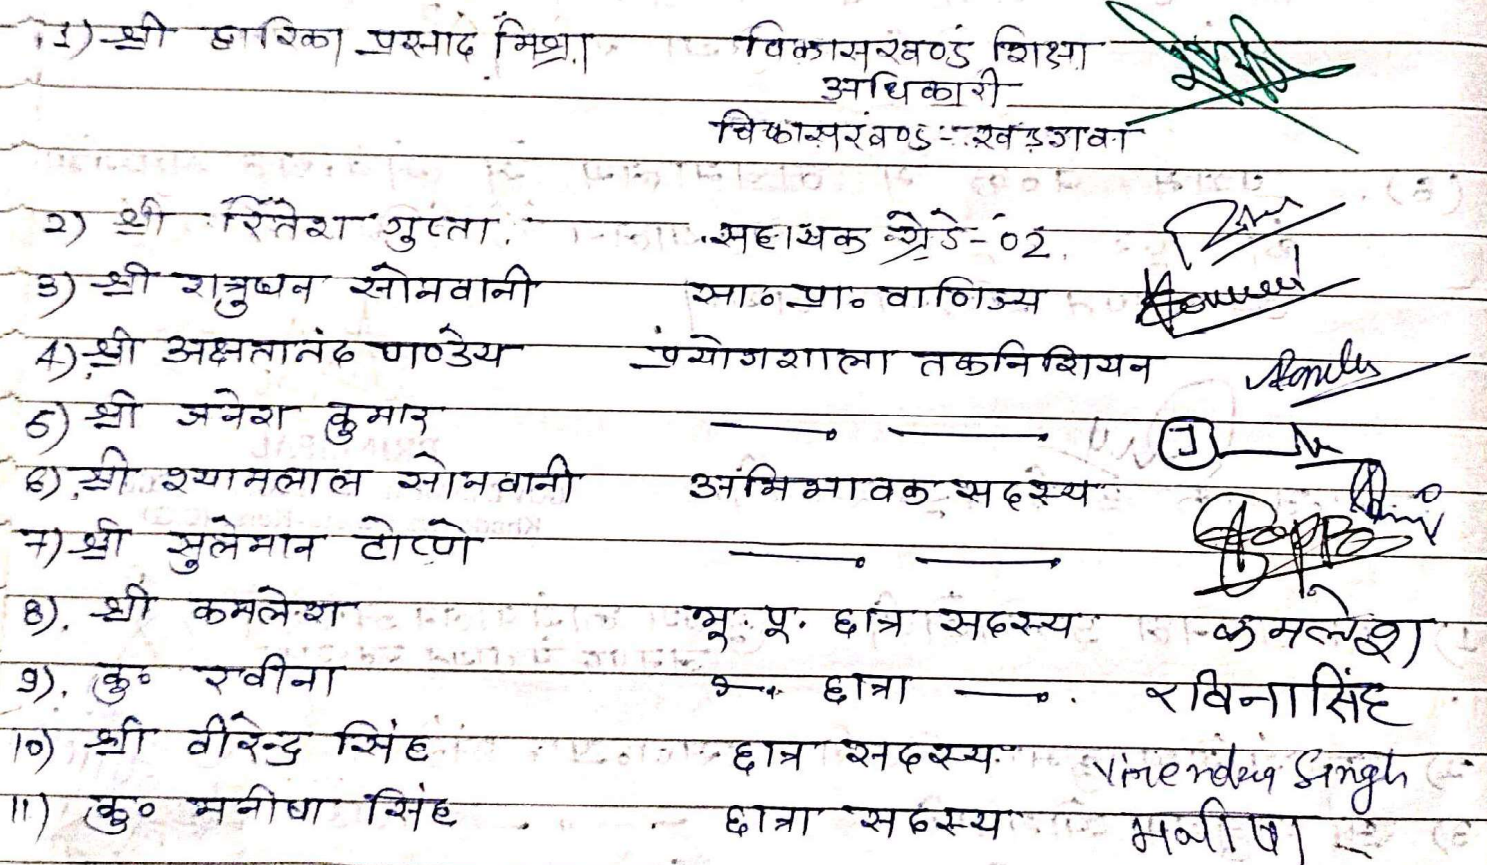 1) श्री द्वारिका प्रसाद मिश्रा विकासखण्ड शिक्षा
अधिकारी
विकासखण्ड - खड़गवा
2) श्री रितेश गुप्ता सहायक ग्रेड-02
3) श्री शत्रुघन सोनवानी सा० प्रा० वाणिज्य
4) श्री अक्षतानंद पाण्डेय प्रयोगशाला तकनिशियन
5) श्री जनेश कुमार
6) श्री श्यामलाल सोनवानी अभिभावक सदस्य
7) श्री सुलेमान टोप्पो Toppo
8). श्री कमलेश भू. पू. छात्र सदस्य कमलेश
9). कु० रवीना छात्रा रविना सिंह
10) श्री वीरेन्द्र सिंह छात्र सदस्य Virendra Singh
11) कु० मनीषा सिंह छात्रा सदस्य मनीषा